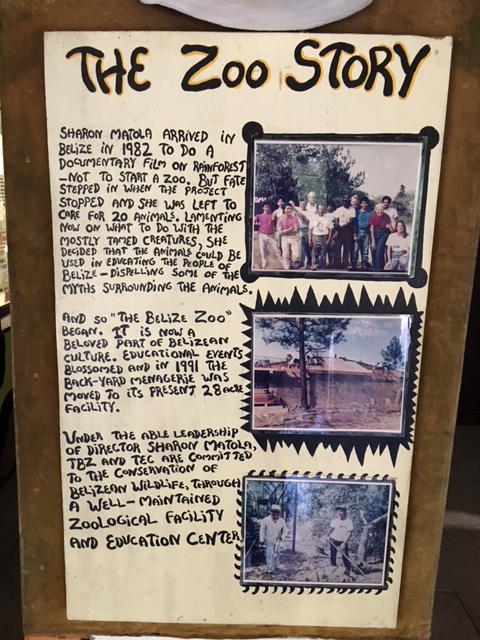 THE ZOO STORY
SHARON MATOLA ARRIVED IN
BELIZE IN 1982 TO DO A
DOCUMENTARY FILM ON RAINFOREST
-NOT TO START A ZOO. BUT FATE
STEPPED IN WHEN THE PROJECT
STOPPED AND SHE WAS LEFT TO
CARE FOR 20 ANIMALS. LAMENTING
NOW ON WHAT TO DO WITH THE
MOSTLY TAMED CREATURES, SHE
DECIDED THAT THE ANIMALS COULD BE
USED IN EDUCATING THE PEOPLE OF
BELIZE - DISPELLING SOME OF THE
MYTHS SURROUNDING THE ANIMALS.
AND SO "THE BELIZE ZOO"
BEGAN. IT IS NOW A
BELOVED PART OF BELIZEAN
CULTURE. EDUCATIONAL EVENTS
BLOSSOMED AND IN 1991 THE
BACK-YARD MENAGERIE WAS
MOVED TO ITS PRESENT 28 ACRE
FACILITY.
UNDER THE ABLE LEADERSHIP
OF DIRECTOR SHARON MATOLA,
TBZ AND TEC ARE COMMITTED
TO THE CONSERVATION OF
BELIZEAN WILDLIFE, THROUGH
A WELL-MAINTAINED
ZOOLOGICAL FACILITY
AND EDUCATION CENTER